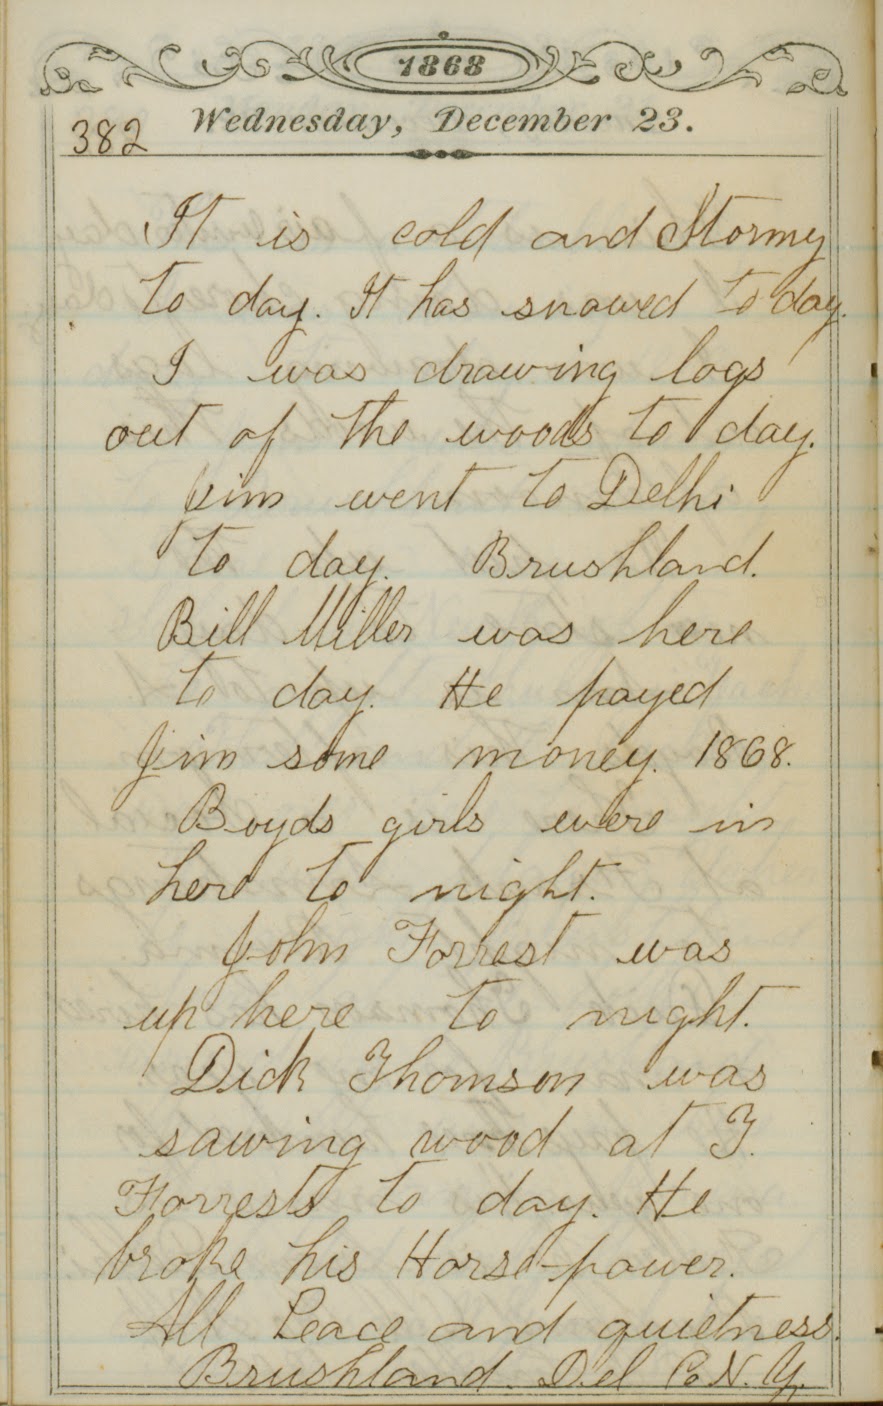 1868
382 Wednesday, December 23.
It is cold and Stormy
to day. It has snowed to day.
I was drawing logs
out of the woods to day.
Jim went to Delhi
to day. Brushland.
Bill Miller was here
to day. He payed
Jim some money. 1868.
Boyds girls were in
here to night.
John Forrest was
up here to night.
Dick Thomson was
sawing wood at T.
Forrests to day. He
broke his Horse-power.
All Peace and quietness.
Brushland. Del Co N. Y.